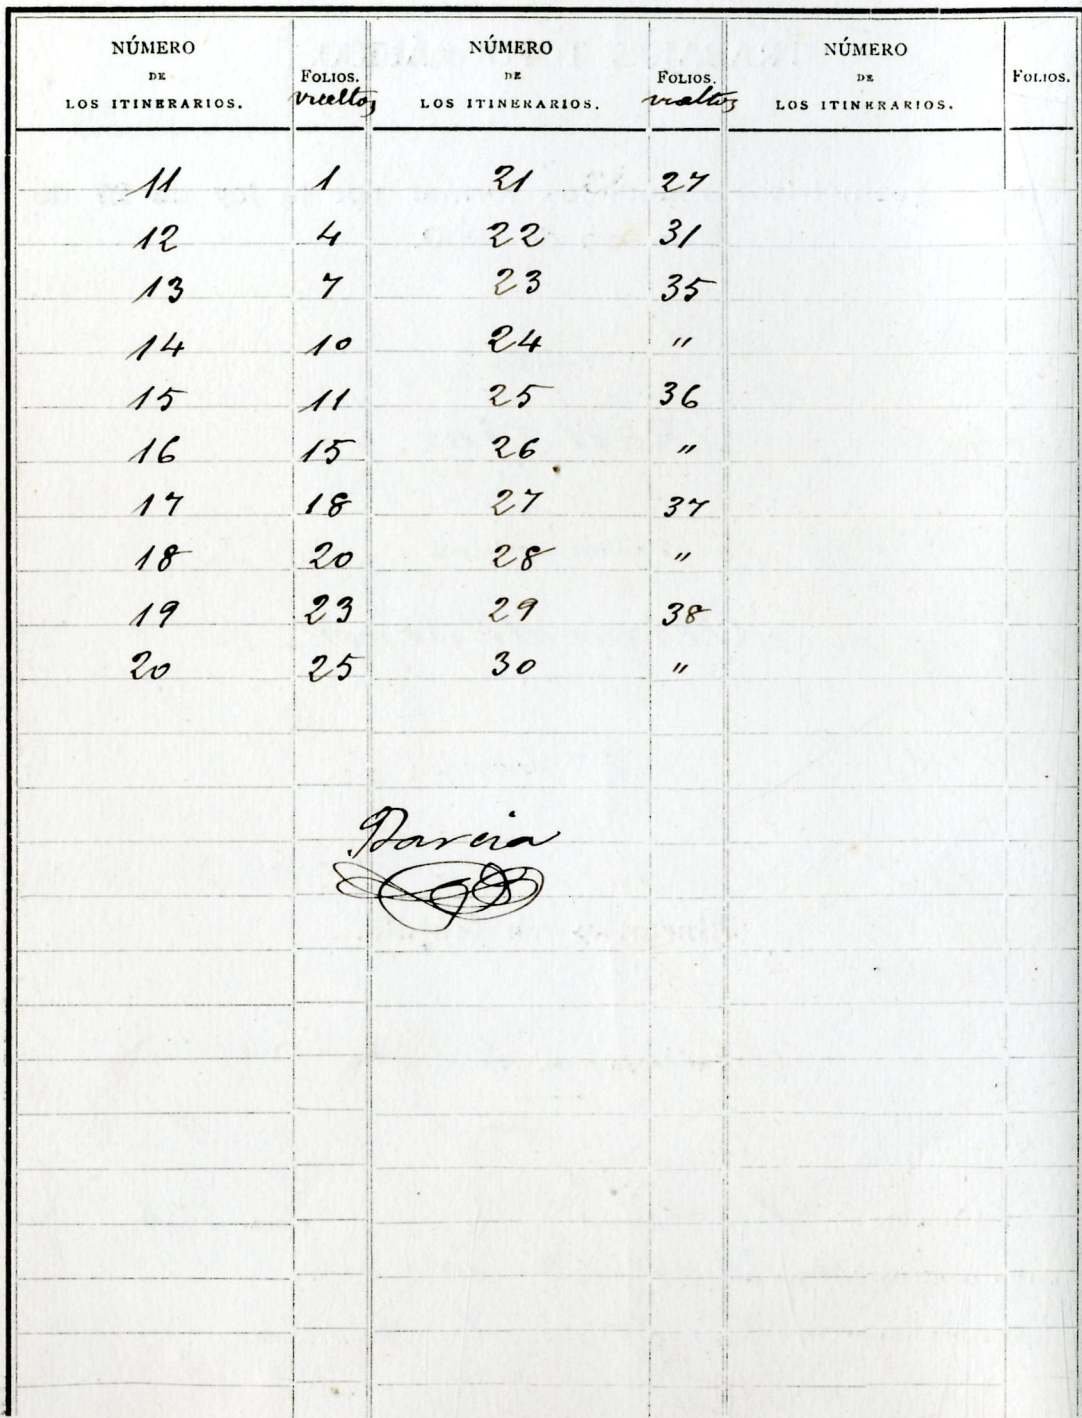 NÚMERO DE LOS ITINERARIOS. FOLIOS. vueltos NÚMERO DE LOS ITINERARIOS. FOLIOS. vueltos NÚMERO DE LOS ITINERARIOS. FOLIOS.
11 1 21 27
12 4 22 31
13 7 23 35
14 10 24 "
15 11 25 36
16 15 26 "
17 18 27 37
18 20 28 "
19 23 29 38
20 25 30 "